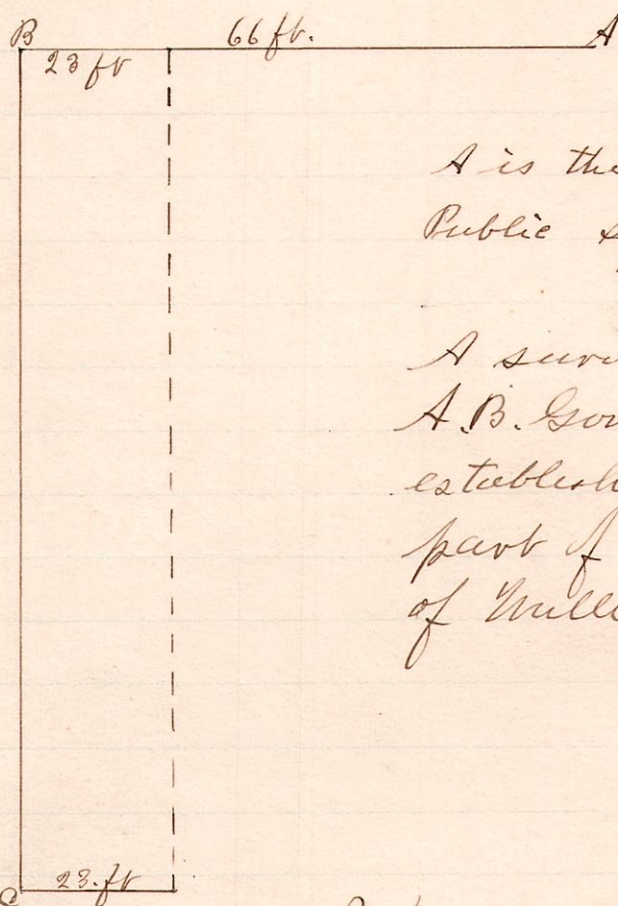 B 66 ft. A
23 ft
A is the
Public
A surv
A.B. Gov
establish
part of
of Mill
23. ft
C